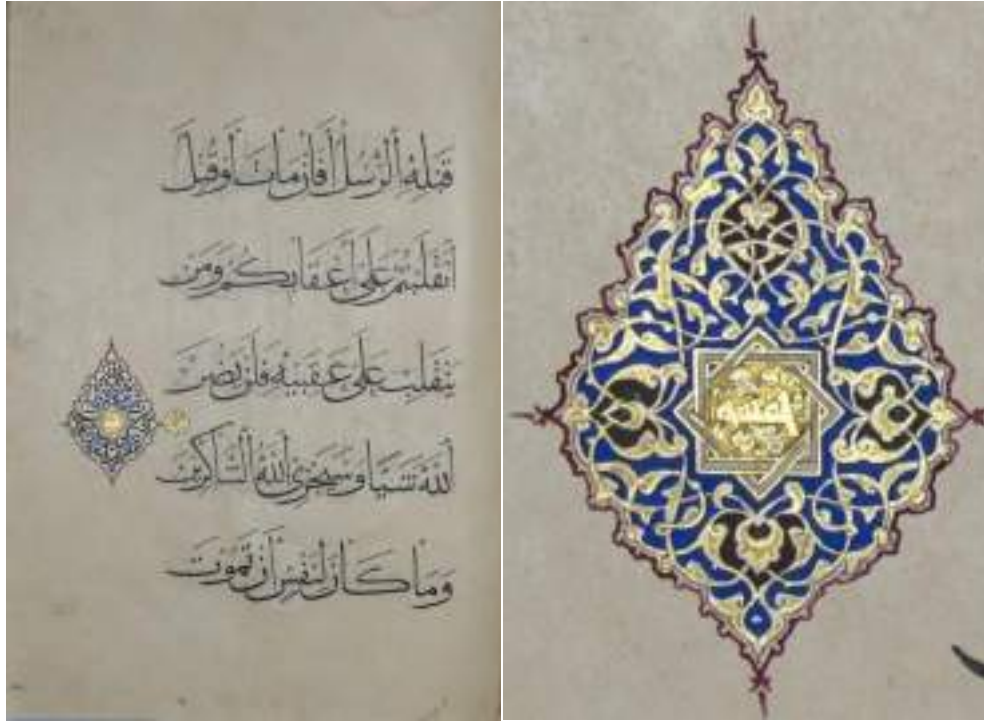 قَبْلِهِ ٱلرُّسُلُ أَفَإِنْ مَاتَ أَوْ قُتِلَ
ٱنْقَلَبْتُمْ عَلَىٰ أَعْقَابِكُمْ وَمَنْ
يَنْقَلِبْ عَلَىٰ عَقِبَيْهِ فَلَنْ يَضُرَّ
ٱللَّهَ شَيْئًا وَسَيَجْزِي ٱللَّهُ ٱلشَّاكِرِينَ
وَمَا كَانَ لِنَفْسٍ أَنْ تَمُوتَ